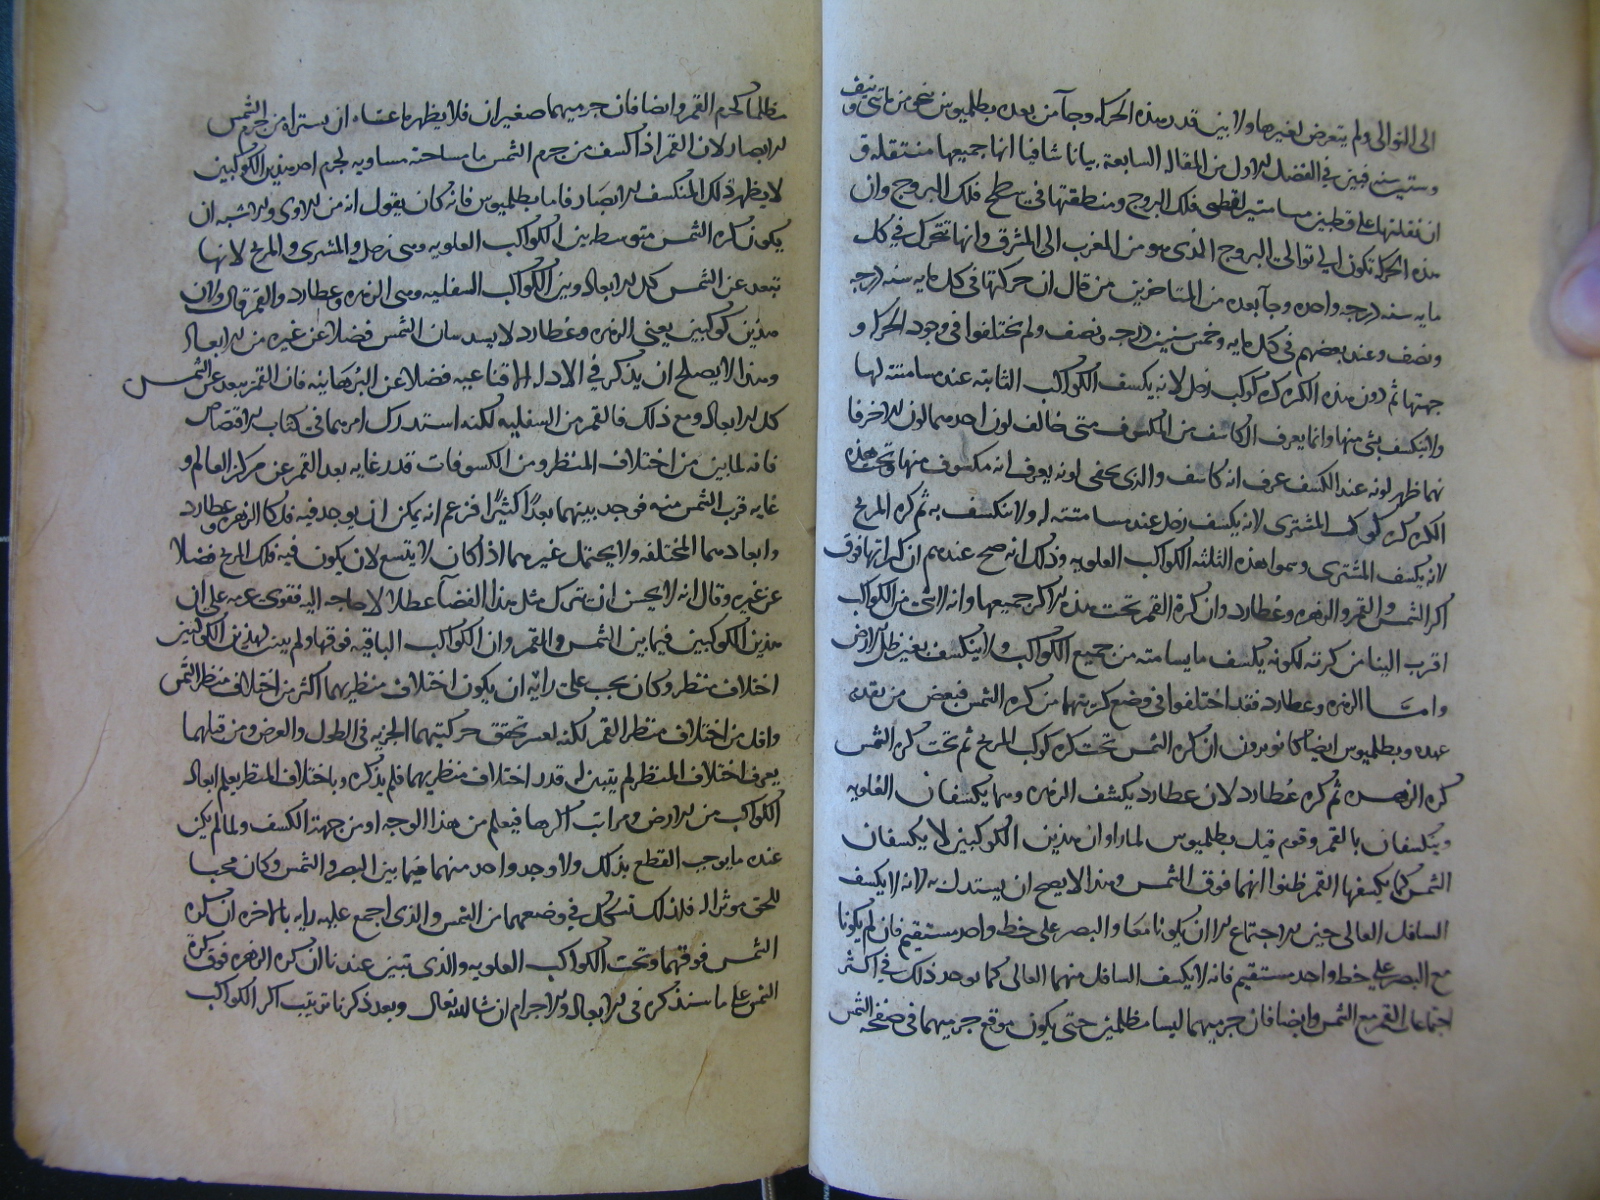 الى التوالى ولم يتعرض لغيرها ولا بين قدر هذه الحركة وجآ من بعده بطلميوس بنحو من ماتى ونيف
وستين سنه فبين في الفصل الاول من المقاله السابعة بيانا شافيا انها جميعها منتقله و
ان نقلتها على قطبين مسامتين لقطبى فلك البروج ومنطقتها في سطح فلك البروج وان
هذه الحركة تكون الى توالى البروج الذى هو من المغرب الى المشرق وانها تتحرك في كل
مايه سنه درجه واحده وجآ بعده من المتاخرين من قال ان حركتها في كل مايه سنه درجه
ونصف وعند بعضهم في كل مايه وخمسين سنه درجه ونصف ولم يختلفوا في وجود الحركه و
جهتها ثم دون هذه الكره كره كوكب زحل لانه يكسف الكواكب الثابته عند مسامتته لها
ولا ينكسف بشئ منها وانما يعرف الكاسف من المكسوف متى خالف لون احدهما لون الاخر فا
يهما ظهر لونه عند الكسف عرف انه كاسف والذى يخفى لونه يعرف انه مكسوف منها وتحت هذه
الكره كره كوكب المشترى لانه يكسف زحل عند مسامتته له ولا ينكسف به ثم كره المريخ
لانه يكسف المشترى وسموا هذه الثلثه الكواكب العلويه وذلك انه صح عندهم ان كراتها فوق
اكر الشمس والقمر والزهره وعطارد وان كرة القمر تحت هذه الاكر جميعها وانه لا شئ من الكواكب
اقرب الينا من كرته لكونه يكسف ما يسامته من جميع الكواكب ولا ينكسف بغير ظل الارض
وامـا الزهره وعطارد فقد اختلفوا في وضع كرتيهما من كره الشمس فبعض من تقدم
عهده وبطلميوس ايضا كانو يرون ان كره الشمس تحت كره كوكب المريخ ثم تحت كره الشمس
كره الزهـره ثم كره عطارد لان عطارد يكسف الزهره وهما يكسفان العلويه
وينكسفان بالقمر وقوم قبل بطلميوس لما راوا ان هذين الكوكبين لا يكسفان
الشمس كما يكسفها القمر ظنوا انهما فوق الشمس وهذا لا يصح ان يستدل به لانه لا يكسف
السافل العالى حين الاجتماع الا ان يكونا معا والبصر على خط واحد مستقيم فان لم يكونا
مع البصر على خط واحد مستقيم فانه لا يكسف السافل منهما العالى كما يوجد ذلك في اكثر
اجتماعات القمر مع الشمس وايضا فان جرميهما ليسا مظلمين حتى يكون موقع جرميهما في صفحه الشمس
مظلما كجرم القمر وايضا فان جرميهما صغيران فلا يظهر ما عساه ان يستراه من جرم الشمس
للابصار لان القمر اذا كسف من جرم الشمس ما مساحته مساويه لجرم احد هذين الكوكبين
لا يظهر ذلك المنكسف للابصار فاما بطلميوس فانه كان يقول انه من الاولى والاشبه ان
يكون كره الشمس متوسطه بين الكواكب العلويه وهى زحل والمشترى والمريخ لانها
تبعد عن الشمس كل الابعاد وبين الكواكب السفليه وهى الزهره وعطارد والقمر قال وان
هذين كوكبين يعنى الزهره وعطارد لا يبعدان الشمس فضلا عن غيره من الابعاد
وهذا لا يصلح ان يذكر في الادلـه الاقناعيه فضلا عن البرهانيه فان القمر يبعد عن الشمس
كل الابعاد ومع ذلك فالقمر من السفليه لكنه استدرك امرهما في كتاب الاقتصاص
فانه لما بين من اختلاف المنظر ومن الكسوفات قدر غايه بعد القمر عن مركز العالم و
غايه قرب الشمس منه فوجد بينهما بعدًا كثيرًا فزعم انه يمكن ان يوجد فيه فلكا الزهره وعطارد
وابعادهما المختلفه ولا يحتمل غيرهما اذا كان لا يتسع لان يكون فيه فلك المريخ فضلا
عن غيره وقال انه لا يحسن ان تترك مثل هذا الفضآ عطلا لا حاجه اليه فقوى عزمه على ان
هذين الكوكبين فيما بين الشمس والقمر وان الكواكب الباقيه فوقها ولم يبين لهذين الكوكبين
اختلاف منظر وكان يجب على رايه ان يكون اختلاف منظريهما اكثر من اختلاف منظر الشمس
واقل من اختلاف منظر القمر لكنه لعسر تحقق حركتيهما الجزيه في الطول والعرض ومن قبلهما
يعرف اختلاف المنظر لم يتبين له قدر اختلاف منظريهما فلم يذكره وباختلاف المنظر يعلم ابعاد
الكواكب من الارض ومراتب اكرها فيعلم من هذا الوجه او من جهة الكسف ولما لم يكن
عنده ما يوجب القطع بذلك ولا وجد واحد منهما فيما بين البصر والشمس وكان محبا
للحق موثرا له فلذلك تشكك في وضعهما من الشمس والذى اجمع عليه رايه بالاخره ان كره
الشمس فوقهما وتحت الكواكب العلويه والذى تبين عندنا ان كره الزهره فوق كرة
الشمس على ما سنذكره في الابعاد والاجرام ان شا الله تعالى وبعد ذكرنا ترتيب اكر الكواكب